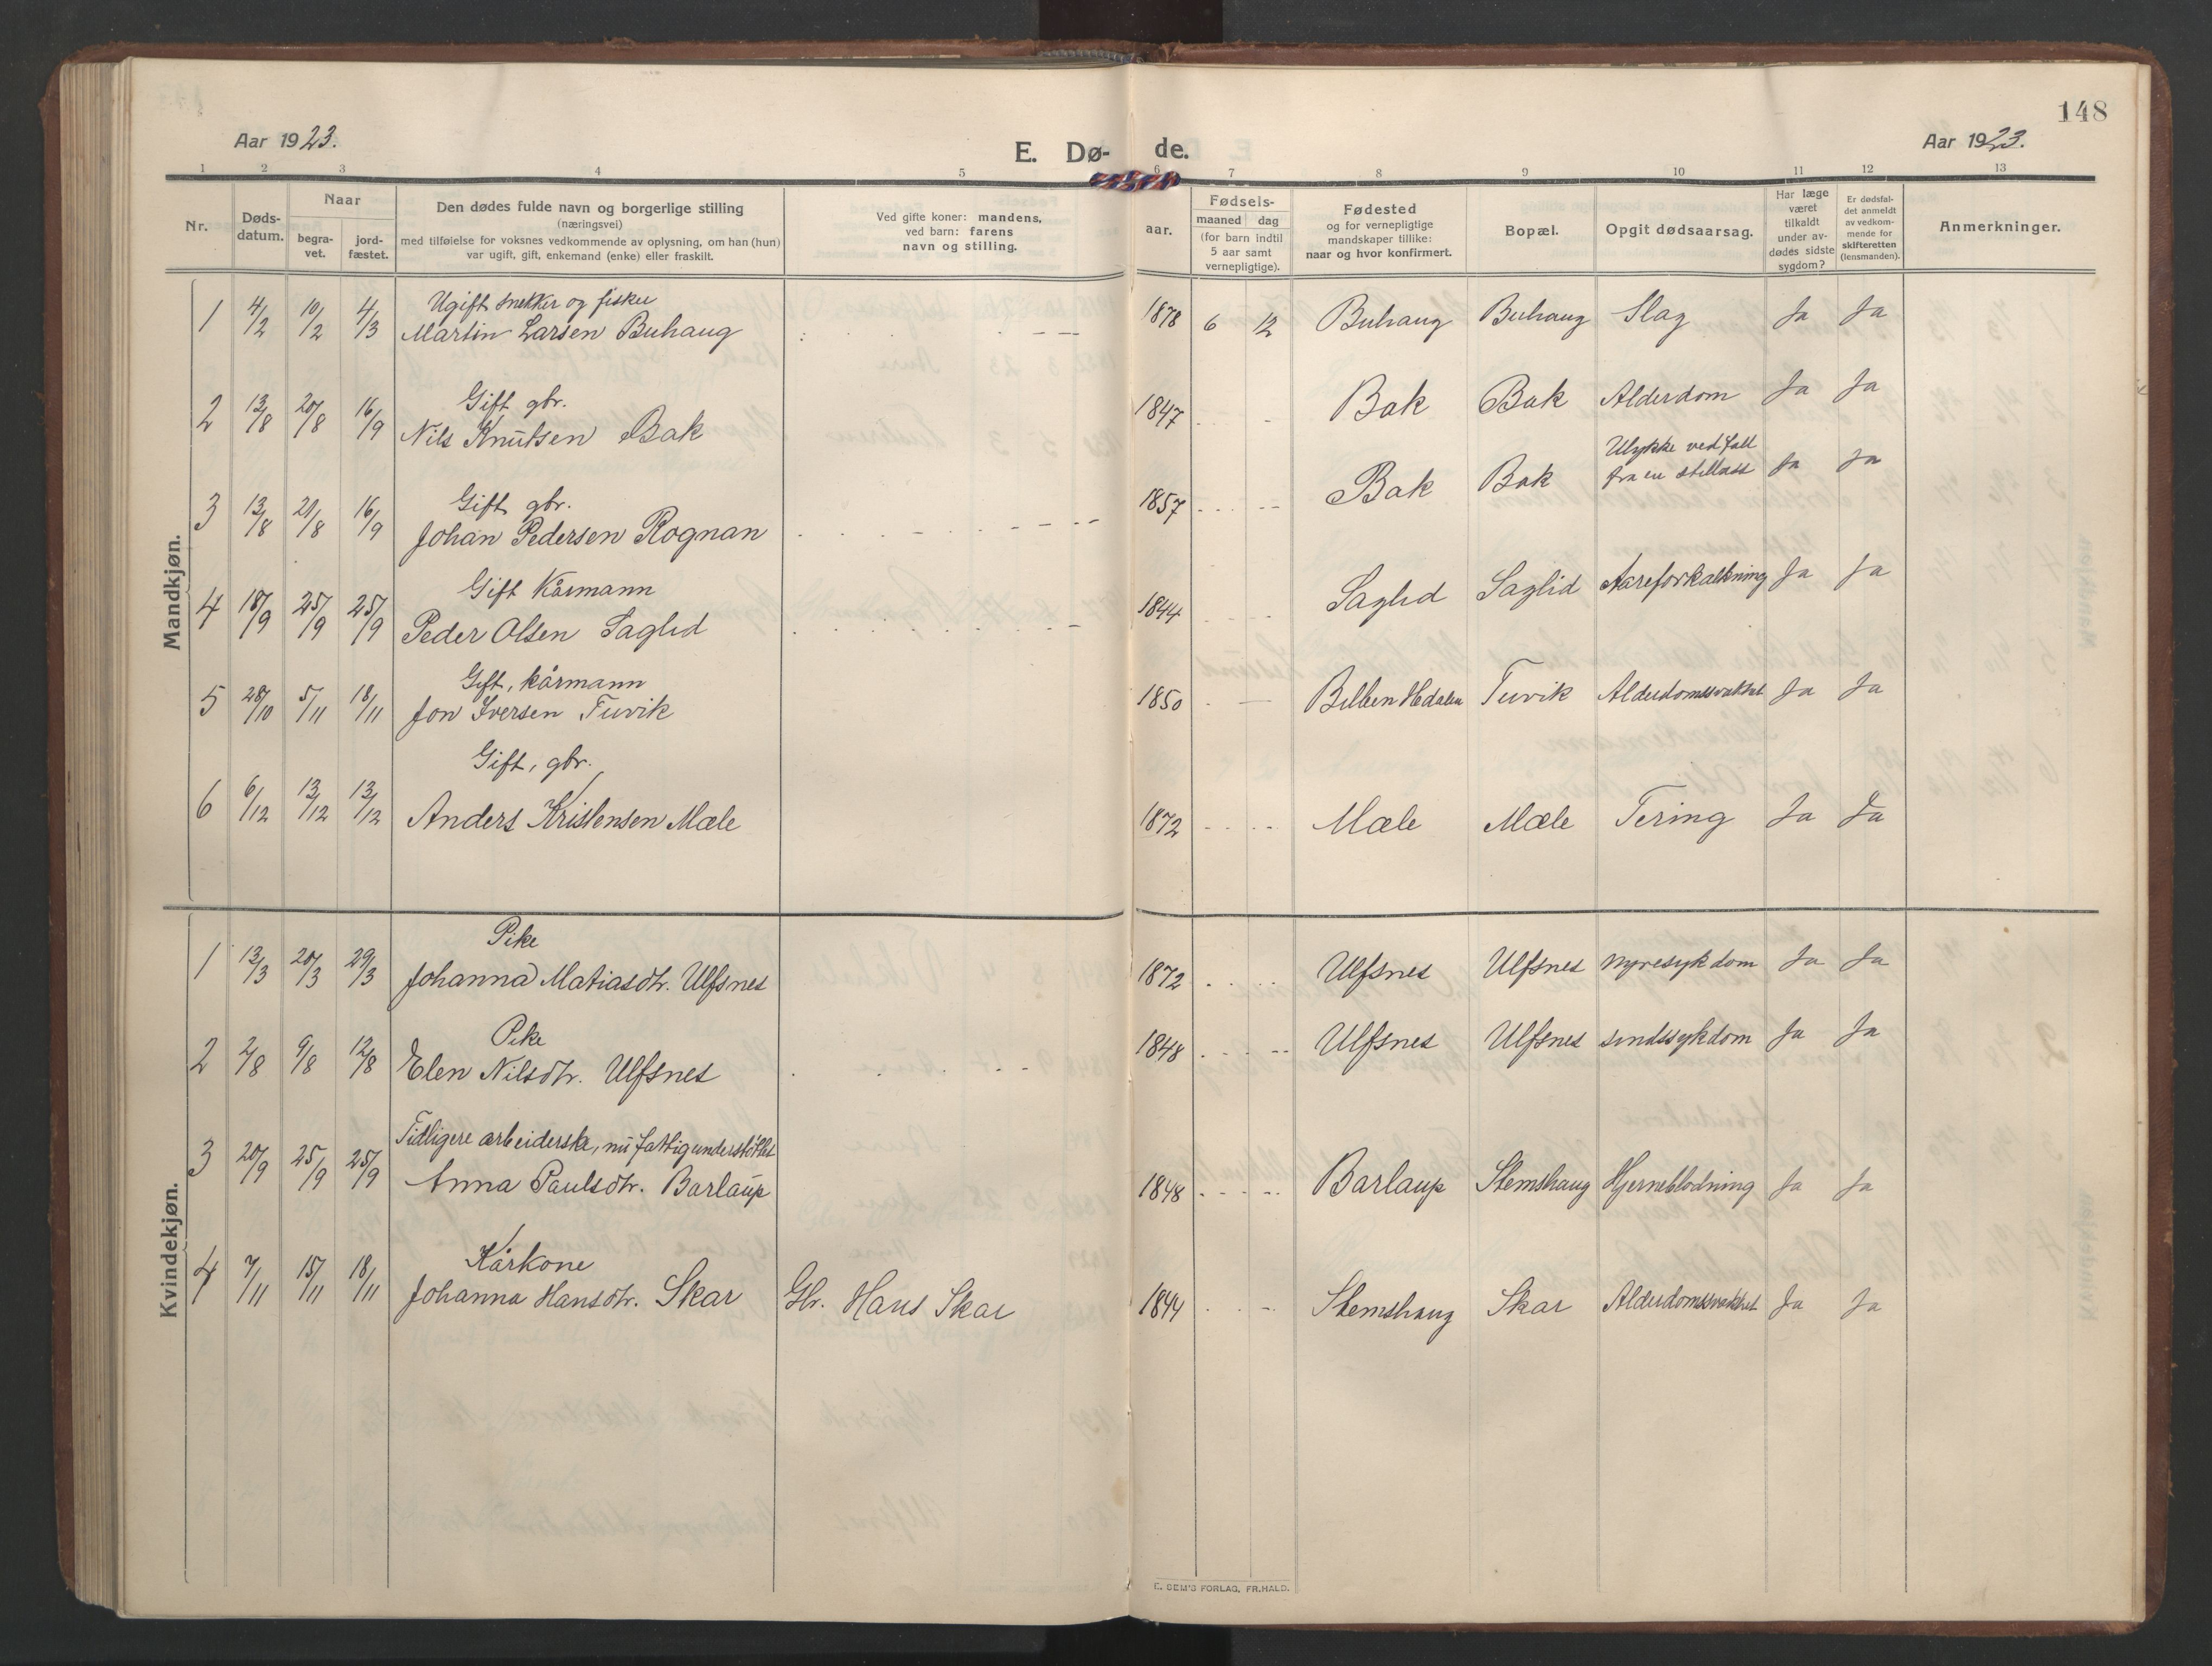 148
Aar 1923.
E. Dø-de.
Aar 1923.
1 2 3 4 5 6 7 8 9 10 11 12 13
Nr.
Døds-
datum.
Naar
begra-
vet.
jord-
fæstet.
Den dødes fulde navn og borgerlige stilling
(næringsvei)
med tilføielse for voksnes vedkommende av oplysning, om han (hun)
var ugift, gift, enkemand (enke) eller fraskilt.
Ved gifte koner: mandens,
ved barn: farens
navn og stilling.
Fødsels-
aar.
maaned dag
(for barn indtil
5 aar samt
vernepligtige).
Fødested
og for vernepligtige
mandskaper tillike:
naar og hvor konfirmert.
Bopæl.
Opgit dødsaarsag.
Har læge
været
tilkaldt
under av-
dødes sidste
sygdom?
Er dødsfal-
det anmeldt
av vedkom-
mende for
skifteretten
(lensmanden).
Anmerkninger.
Mandkjøn.
Ugift snekker og fisker
1 4/2 10/2 4/3 Martin Larsen Buhaug 1878 6 12 Buhaug Buhaug Slag Ja Ja
Gift gbr.
2 13/8 20/8 16/9 Nils Knutsen Bak 1847 Bak Bak Alderdom Ja Ja
Gift gbr.
Ulykke ved fall
fra en stillass
3 13/8 21/8 16/9 Johan Pedersen Rognan 1857 Bak Bak Ja Ja
Gift Kårmann
4 18/9 25/9 25/9 Peder Olsen Saglid 1844 Saglid Saglid Aareforkalkning Ja Ja
Gift, kårmann
5 28/10 5/11 18/11 Jon Iversen Tuvik 1850 Tuvik Alderdomssvakhet Ja Ja
Gift, gbr.
6 6/12 13/12 13/12 Anders Kristensen Mæle 1872 Mæle Mæle Tæring Ja Ja
Kvindekjøn.
Pike
1 13/3 20/3 29/3 Johanna Matiasdtr. Ulfsnes 1872 Ulfsnes Ulfsnes Nyresykdom Ja Ja
Pike
2 2/8 9/8 12/8 Elen Nilsdtr. Ulfsnes 1848 Ulfsnes Ulfsnes sindssykdom Ja Ja
Tidligere arbeiderske, nu fattigunderstöttet
3 20/9 25/9 25/9 Anna Paulsdtr. Barlaup 1848 Barlaup Stemshaug Hjerneblødning Ja Ja
Kårkone
4 7/11 15/11 18/11 Johanna Hansdtr. Skar Gbr. Hans Skar 1844 Stemshaug Skar Alderdomssvakhet Ja Ja
E. SEM'S FORLAG, FR.HALD.